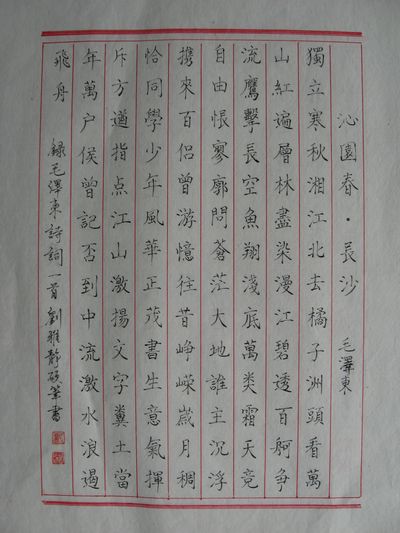 沁園春·長沙 毛澤東
獨立寒秋湘江北去橘子洲頭看萬
山紅遍層林盡染漫江碧透百舸爭
流鷹擊長空魚翔淺底萬类霜天竞
自由悵寥廓問蒼茫大地誰主沉浮
携來百侶曾游憶往昔崢嶸歲月稠
恰同學少年風華正茂書生意氣揮
斥方遒指点江山激揚文字糞土當
年萬户侯曾記否到中流激水浪遏
飛舟 録毛澤東詩詞一首劉雅静硬筆書